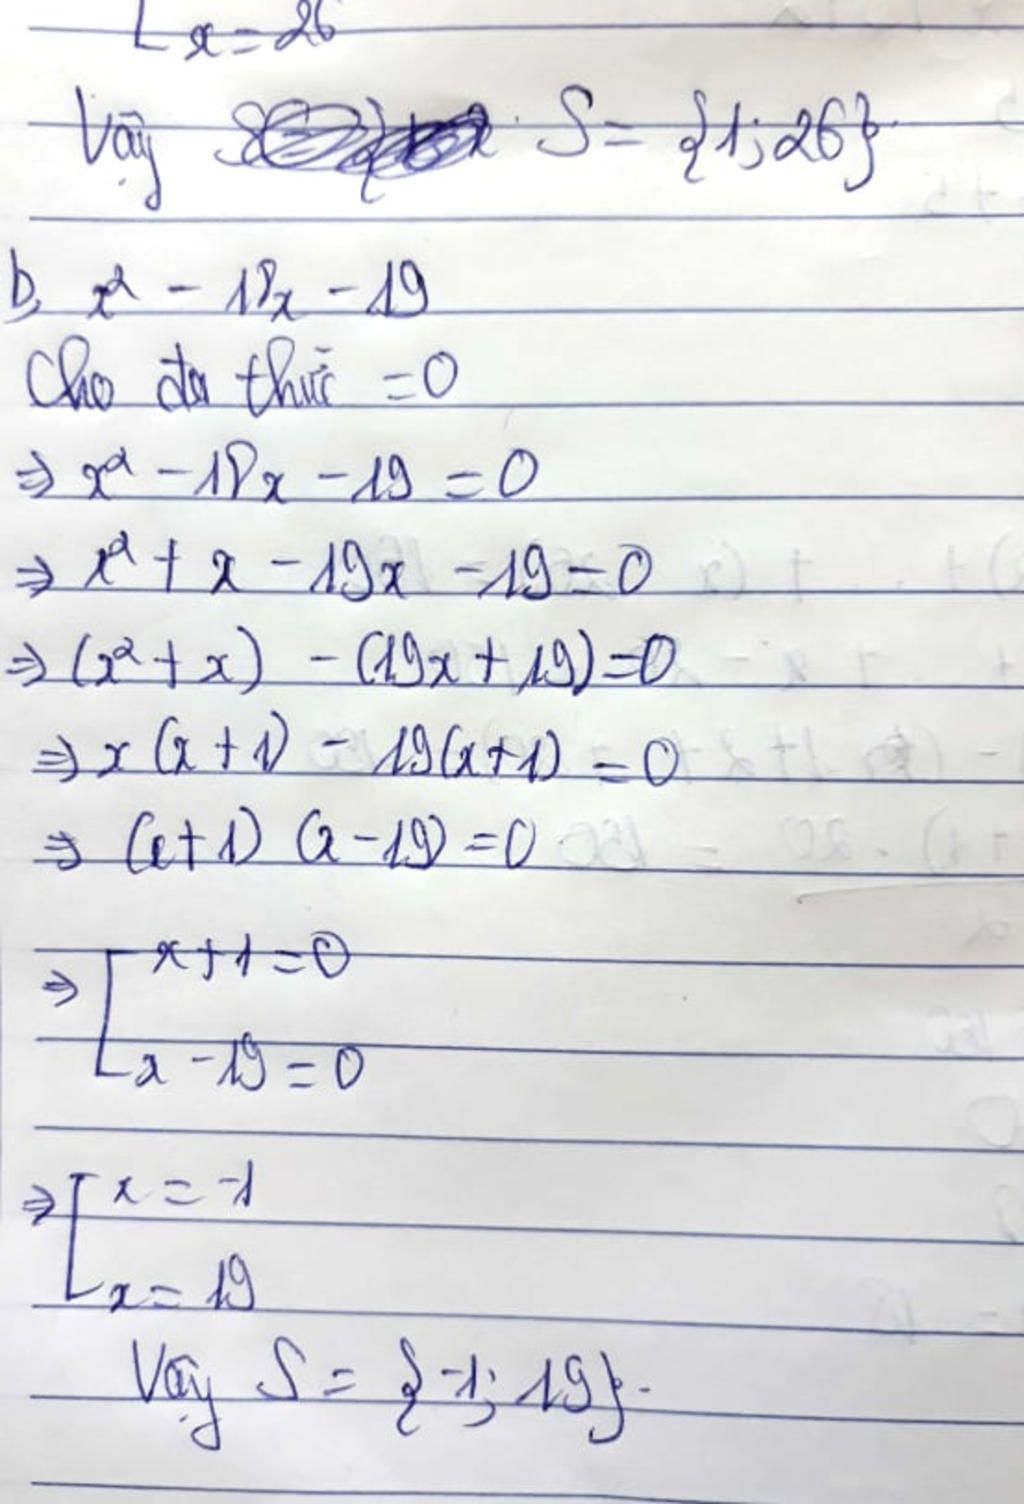 x = 26
Vậy S = {1; 26}.
b, x² - 18x - 19
Cho đa thức = 0
⇒ x² - 18x - 19 = 0
⇒ x² + x - 19x - 19 = 0
⇒ (x² + x) - (19x + 19) = 0
⇒ x (x + 1) - 19(x + 1) = 0
⇒ (x + 1) (x - 19) = 0
⇒ [ x + 1 = 0
x - 19 = 0
⇒ [ x = -1
x = 19
Vậy S = {-1; 19}.